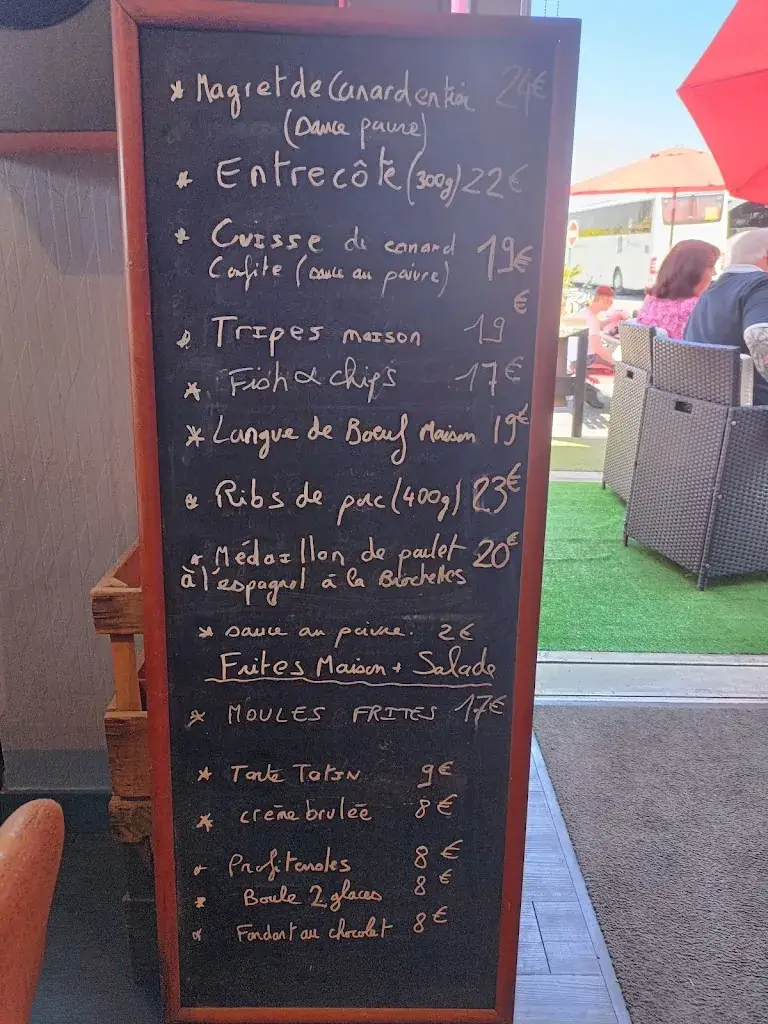 * Magret de Canard entier 24€
(Sauce poivre)
* Entrecôte (300g) 22€
* Cuisse de canard 19€
Confite (sauce au poivre)
* Tripes maison 19€
* Fish & chips 17€
* Langue de Boeuf Maison 19€
* Ribs de porc (400g) 23€
* Médaillon de poulet 20€
à l'espagnol à la Brochettes
* sauce au poivre. 2€
Frites Maison + Salade
* MOULES FRITES 17€
* Tarte Tatin 9€
* crème brulée 8€
* Profiteroles 8€
* Boule 2 glaces 8€
* Fondant au chocolat 8€